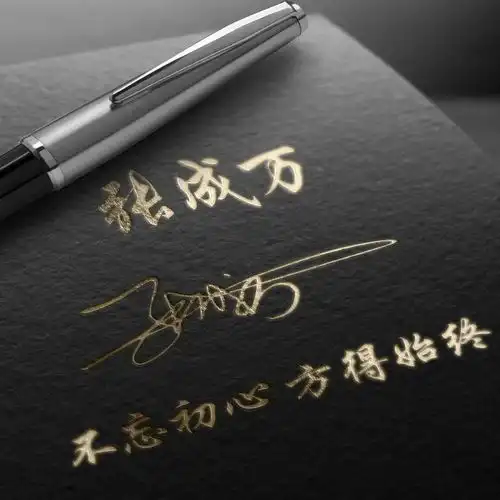 张成万
不忘初心 方得始终